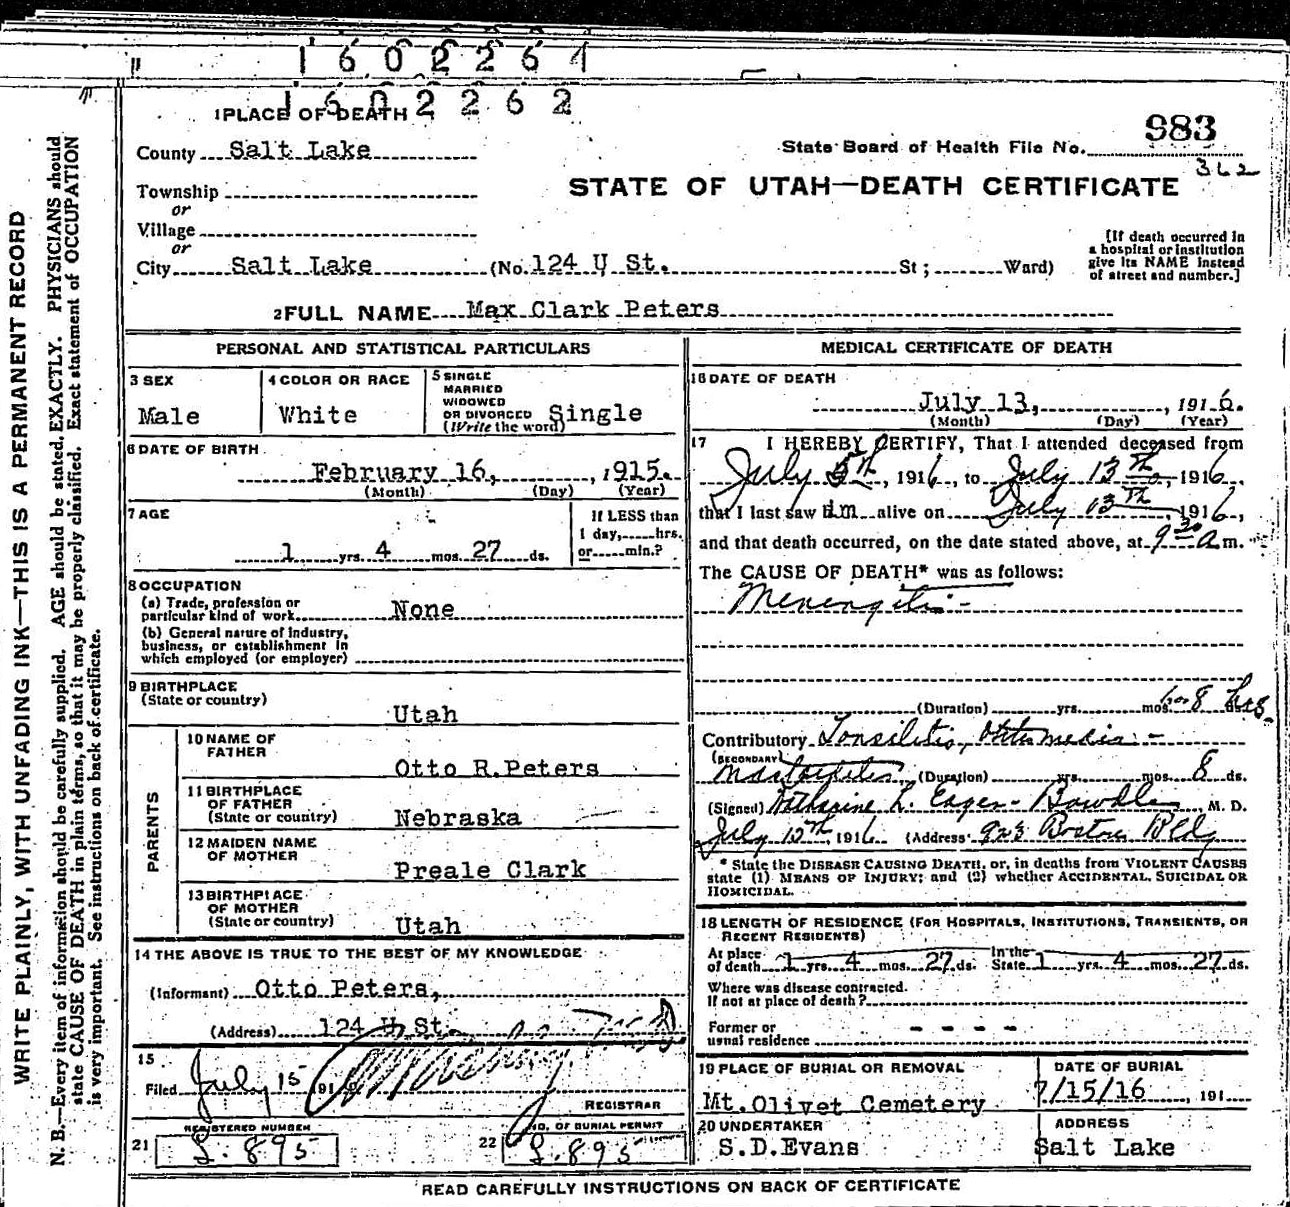 1602261
1602262
1 PLACE OF DEATH
983
State Board of Health File No.
362
County Salt Lake
STATE OF UTAH—DEATH CERTIFICATE
Township
or
Village
or
City Salt Lake (No. 124 U St. St; Ward)
[If death occurred in
a hospital or institution
give its NAME instead
of street and number.]
2 FULL NAME Max Clark Peters
PERSONAL AND STATISTICAL PARTICULARS
3 SEX
Male
4 COLOR OR RACE
White
5 SINGLE
MARRIED
WIDOWED
OR DIVORCED
(Write the word) Single
6 DATE OF BIRTH
February 16, 1915.
(Month) (Day) (Year)
7 AGE
1 yrs. 4 mos. 27 ds.
If LESS than
1 day, hrs.
or min.?
8 OCCUPATION
(a) Trade, profession or
particular kind of work None
(b) General nature of industry,
business, or establishment in
which employed (or employer)
9 BIRTHPLACE
(State or country)
Utah
PARENTS
10 NAME OF
FATHER
Otto R. Peters
11 BIRTHPLACE
OF FATHER
(State or country) Nebraska
12 MAIDEN NAME
OF MOTHER
Preale Clark
13 BIRTHPLACE
OF MOTHER
(State or country) Utah
14 THE ABOVE IS TRUE TO THE BEST OF MY KNOWLEDGE
(Informant) Otto Peters,
(Address) 124 U St.
15
Filed July 15 191
REGISTRAR
REGISTERED NUMBER
21 L. 895
NO. OF BURIAL PERMIT
22 L. 895
MEDICAL CERTIFICATE OF DEATH
16 DATE OF DEATH
July 13, 1916.
(Month) (Day) (Year)
17 I HEREBY CERTIFY, That I attended deceased from
July 5th, 1916, to July 13th, 1916,
that I last saw him alive on July 13th, 1916,
and that death occurred, on the date stated above, at 9 30 a m.
The CAUSE OF DEATH* was as follows:
Meningitis -
(Duration) yrs. mos. 8 hrs.
Contributory Tonsilitis, Otitis media -
(SECONDARY)
Mastoiditis (Duration) yrs. mos. 8 ds.
(Signed) Katharine L. Eager-Bowdle, M. D.
July 15th, 1916 (Address) 923 Boston Bldg
* State the DISEASE CAUSING DEATH, or, in deaths from VIOLENT CAUSES
state (1) MEANS OF INJURY; and (2) whether ACCIDENTAL, SUICIDAL OR
HOMICIDAL.
18 LENGTH OF RESIDENCE (FOR HOSPITALS, INSTITUTIONS, TRANSIENTS, OR
RECENT RESIDENTS)
At place
of death 1 yrs. 4 mos. 27 ds. In the
State 1 yrs. 4 mos. 27 ds.
Where was disease contracted.
If not at place of death?
Former or
usual residence - - - -
19 PLACE OF BURIAL OR REMOVAL
Mt. Olivet Cemetery
DATE OF BURIAL
7/15/16, 191
20 UNDERTAKER
S.D.Evans
ADDRESS
Salt Lake
READ CAREFULLY INSTRUCTIONS ON BACK OF CERTIFICATE
WRITE PLAINLY, WITH UNFADING INK—THIS IS A PERMANENT RECORD
N. B.—Every item of information should be carefully supplied. AGE should be stated EXACTLY. PHYSICIANS should
state CAUSE OF DEATH in plain terms, so that it may be properly classified. Exact statement of OCCUPATION
is very important. See instructions on back of certificate.